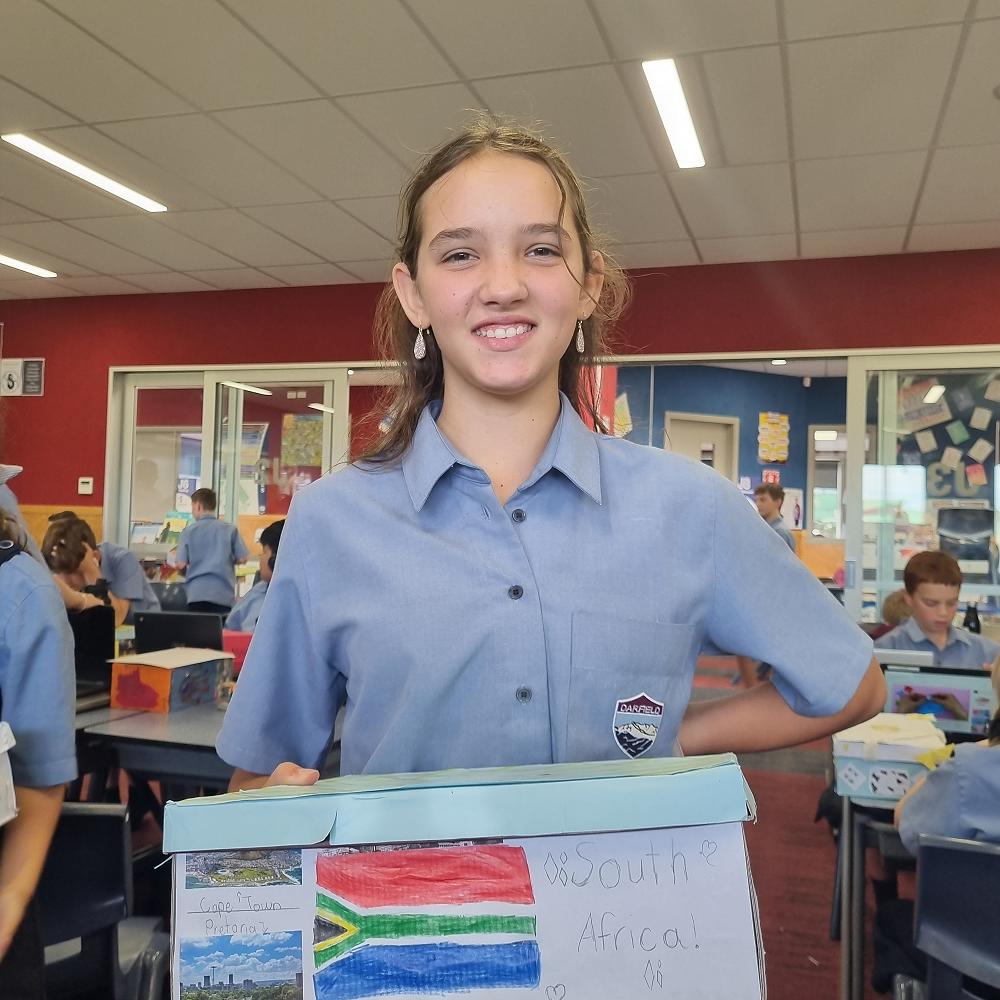 DARFIELD
Cape Town
Pretoria
South
Africa!